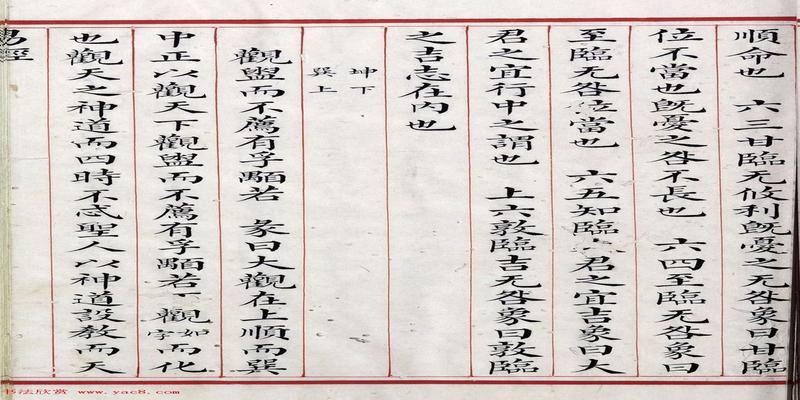 順命也 六三甘臨无攸利旣憂之无咎象曰甘臨
位不當也旣憂之咎不長也 六四至臨无咎象曰
至臨无咎位當也 六五知臨君之宜吉象曰大
君之宜行中之謂也 上六敦臨吉无咎象曰敦臨
之吉志在内也
坤下
巽上
觀盥而不薦有孚顒若 彖曰大觀在上順而巽
中正以觀天下觀盥而不薦有孚顒若 觀如字而化
也觀天之神道而四時不忒聖人以神道設教而天
易經
书法欣赏 www.yac8.com